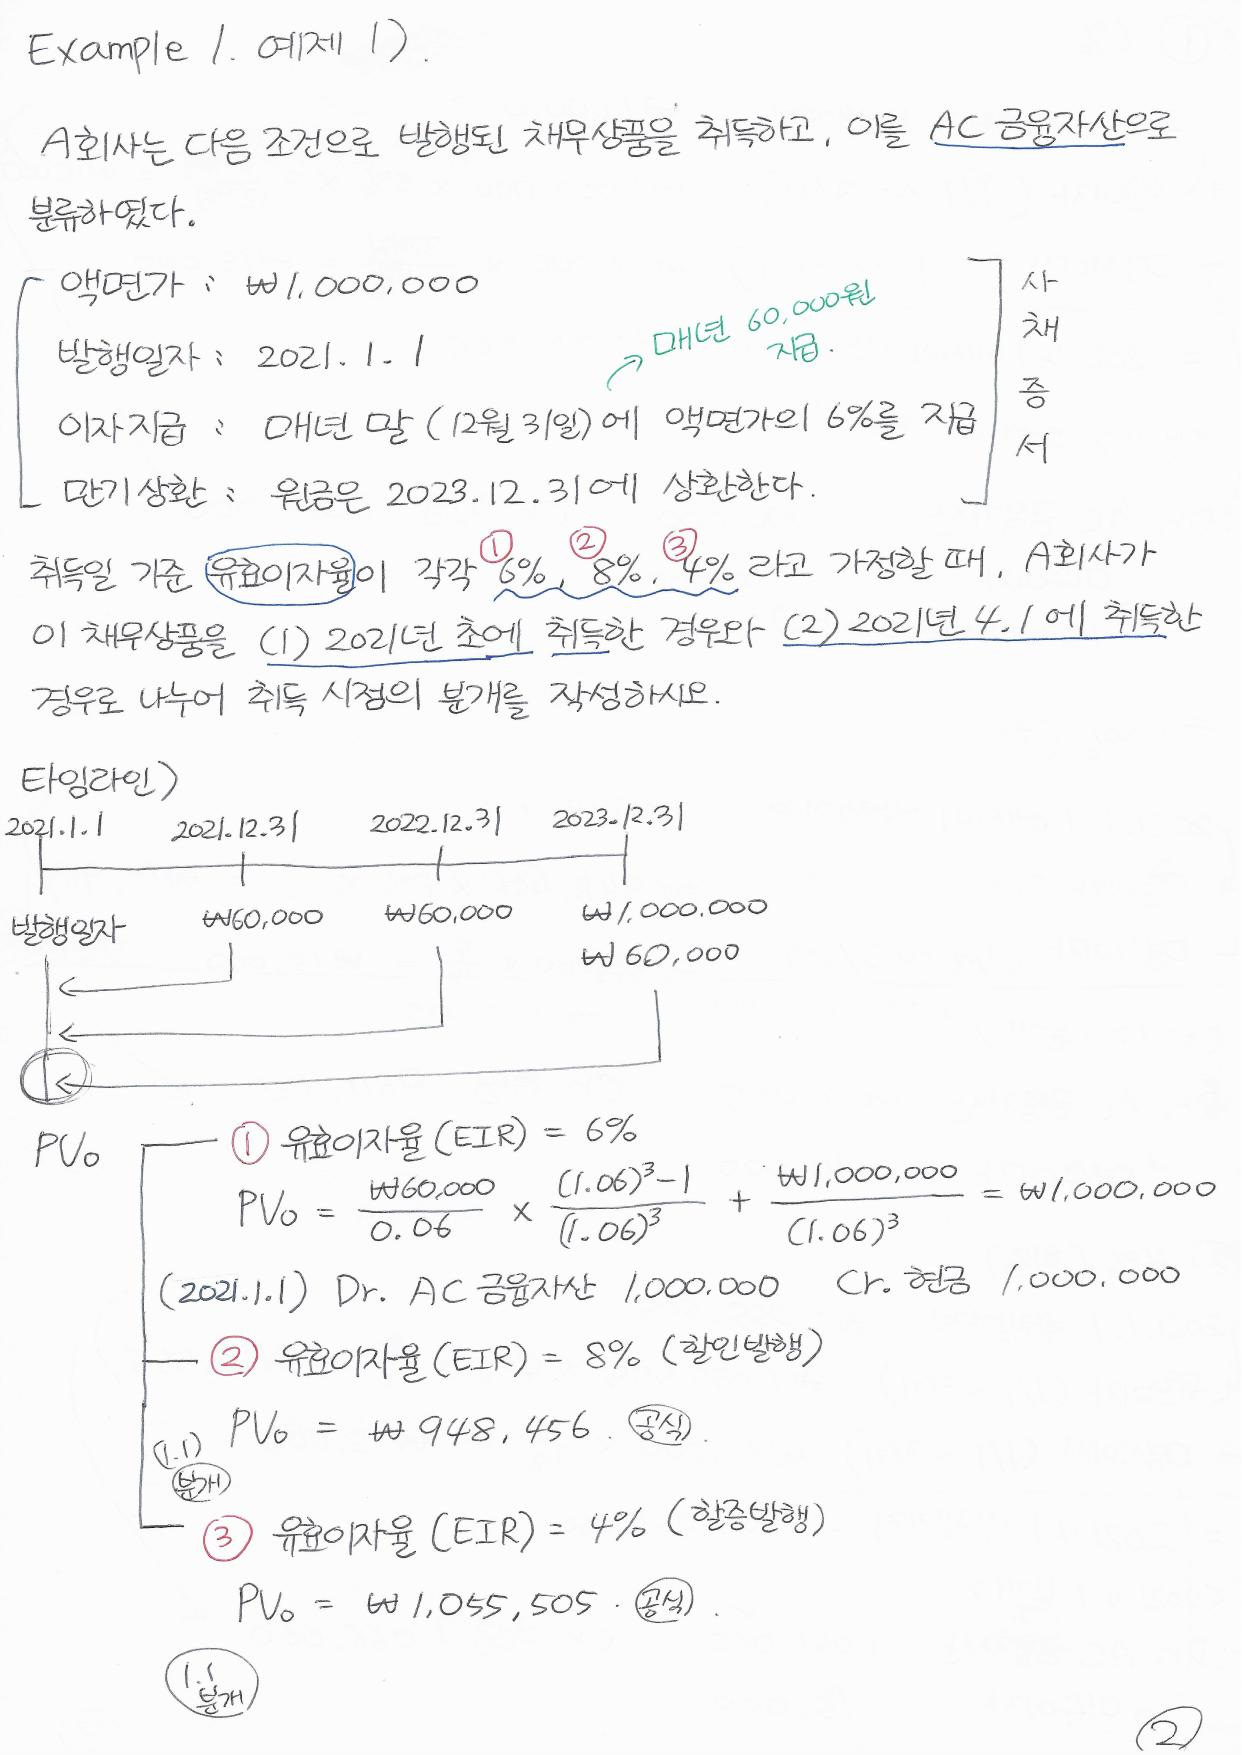 Example 1. 예제 1).
A회사는 다음 조건으로 발행된 채무상품을 취득하고, 이를 AC 금융자산으로
분류하였다.
액면가 : ₩1,000,000
발행일자 : 2021. 1. 1
매년 60,000원
지급.
이자지급 : 매년 말 (12월 31일)에 액면가의 6%를 지급
만기상환 : 원금은 2023.12.31에 상환한다.
사
채
증
서
① ② ③
취득일 기준 유효이자율이 각각 6%, 8%, 4% 라고 가정할 때, A회사가
이 채무상품을 (1) 2021년 초에 취득한 경우와 (2) 2021년 4.1에 취득한
경우로 나누어 취득 시점의 분개를 작성하시오.
타임라인)
2021.1.1 2021.12.31 2022.12.31 2023.12.31
발행일자 ₩60,000 ₩60,000 ₩1,000,000
₩60,000
PV₀
① 유효이자율(EIR) = 6%
PV₀ = ₩60,000/0.06 × (1.06)³-1/(1.06)³ + ₩1,000,000/(1.06)³ = ₩1,000,000
(2021.1.1) Dr. AC 금융자산 1,000,000 Cr. 현금 1,000,000
② 유효이자율(EIR) = 8% (할인발행)
PV₀ = ₩948,456. 공식.
(1.1)
분개
③ 유효이자율(EIR) = 4% (할증발행)
PV₀ = ₩1,055,505. 공식.
1.1
분개
②